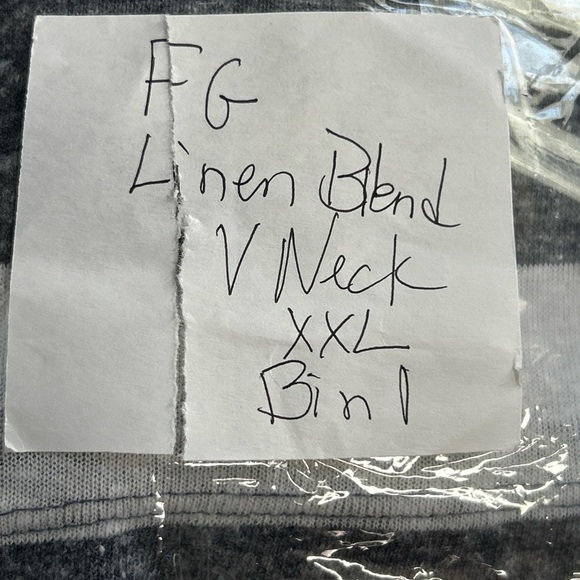 FG
Linen Blend
V Neck
XXL
Bin 1